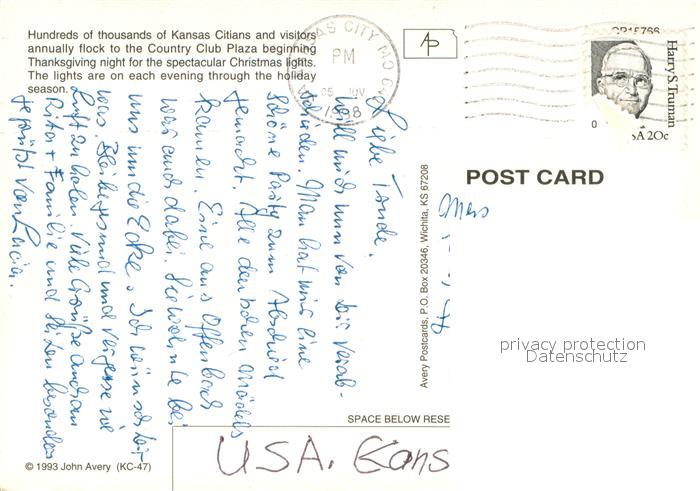 Hundreds of thousands of Kansas Citians and visitors
annually flock to the Country Club Plaza beginning
Thanksgiving night for the spectacular Christmas lights.
The lights are on each evening through the holiday
season.
KANSAS CITY MO
PM
05 NOV
1998
AP
CP15766
Harry S. Truman
USA 20c
POST CARD
Liebe Tande.
will mich nun von dir verab-
schieden. Man hat mir eine
schöne Party zum Abschied
gemacht. Alle deutschen Mädels
kamen. Eine aus Offenbach
war auch dabei. Sie wohnte bei
uns um die Ecke. Ich wünsch dir
was. Bleib gesund und vergesse nie
Luft zu holen. Viele Grüße auch an
Rita + Familie und sei besonders
gegrüßt von Lucia.
Avery Postcards, P.O. Box 20346, Wichita, KS 67208
privacy protection
Datenschutz
SPACE BELOW RESE
USA. Cans
© 1993 John Avery (KC-47)